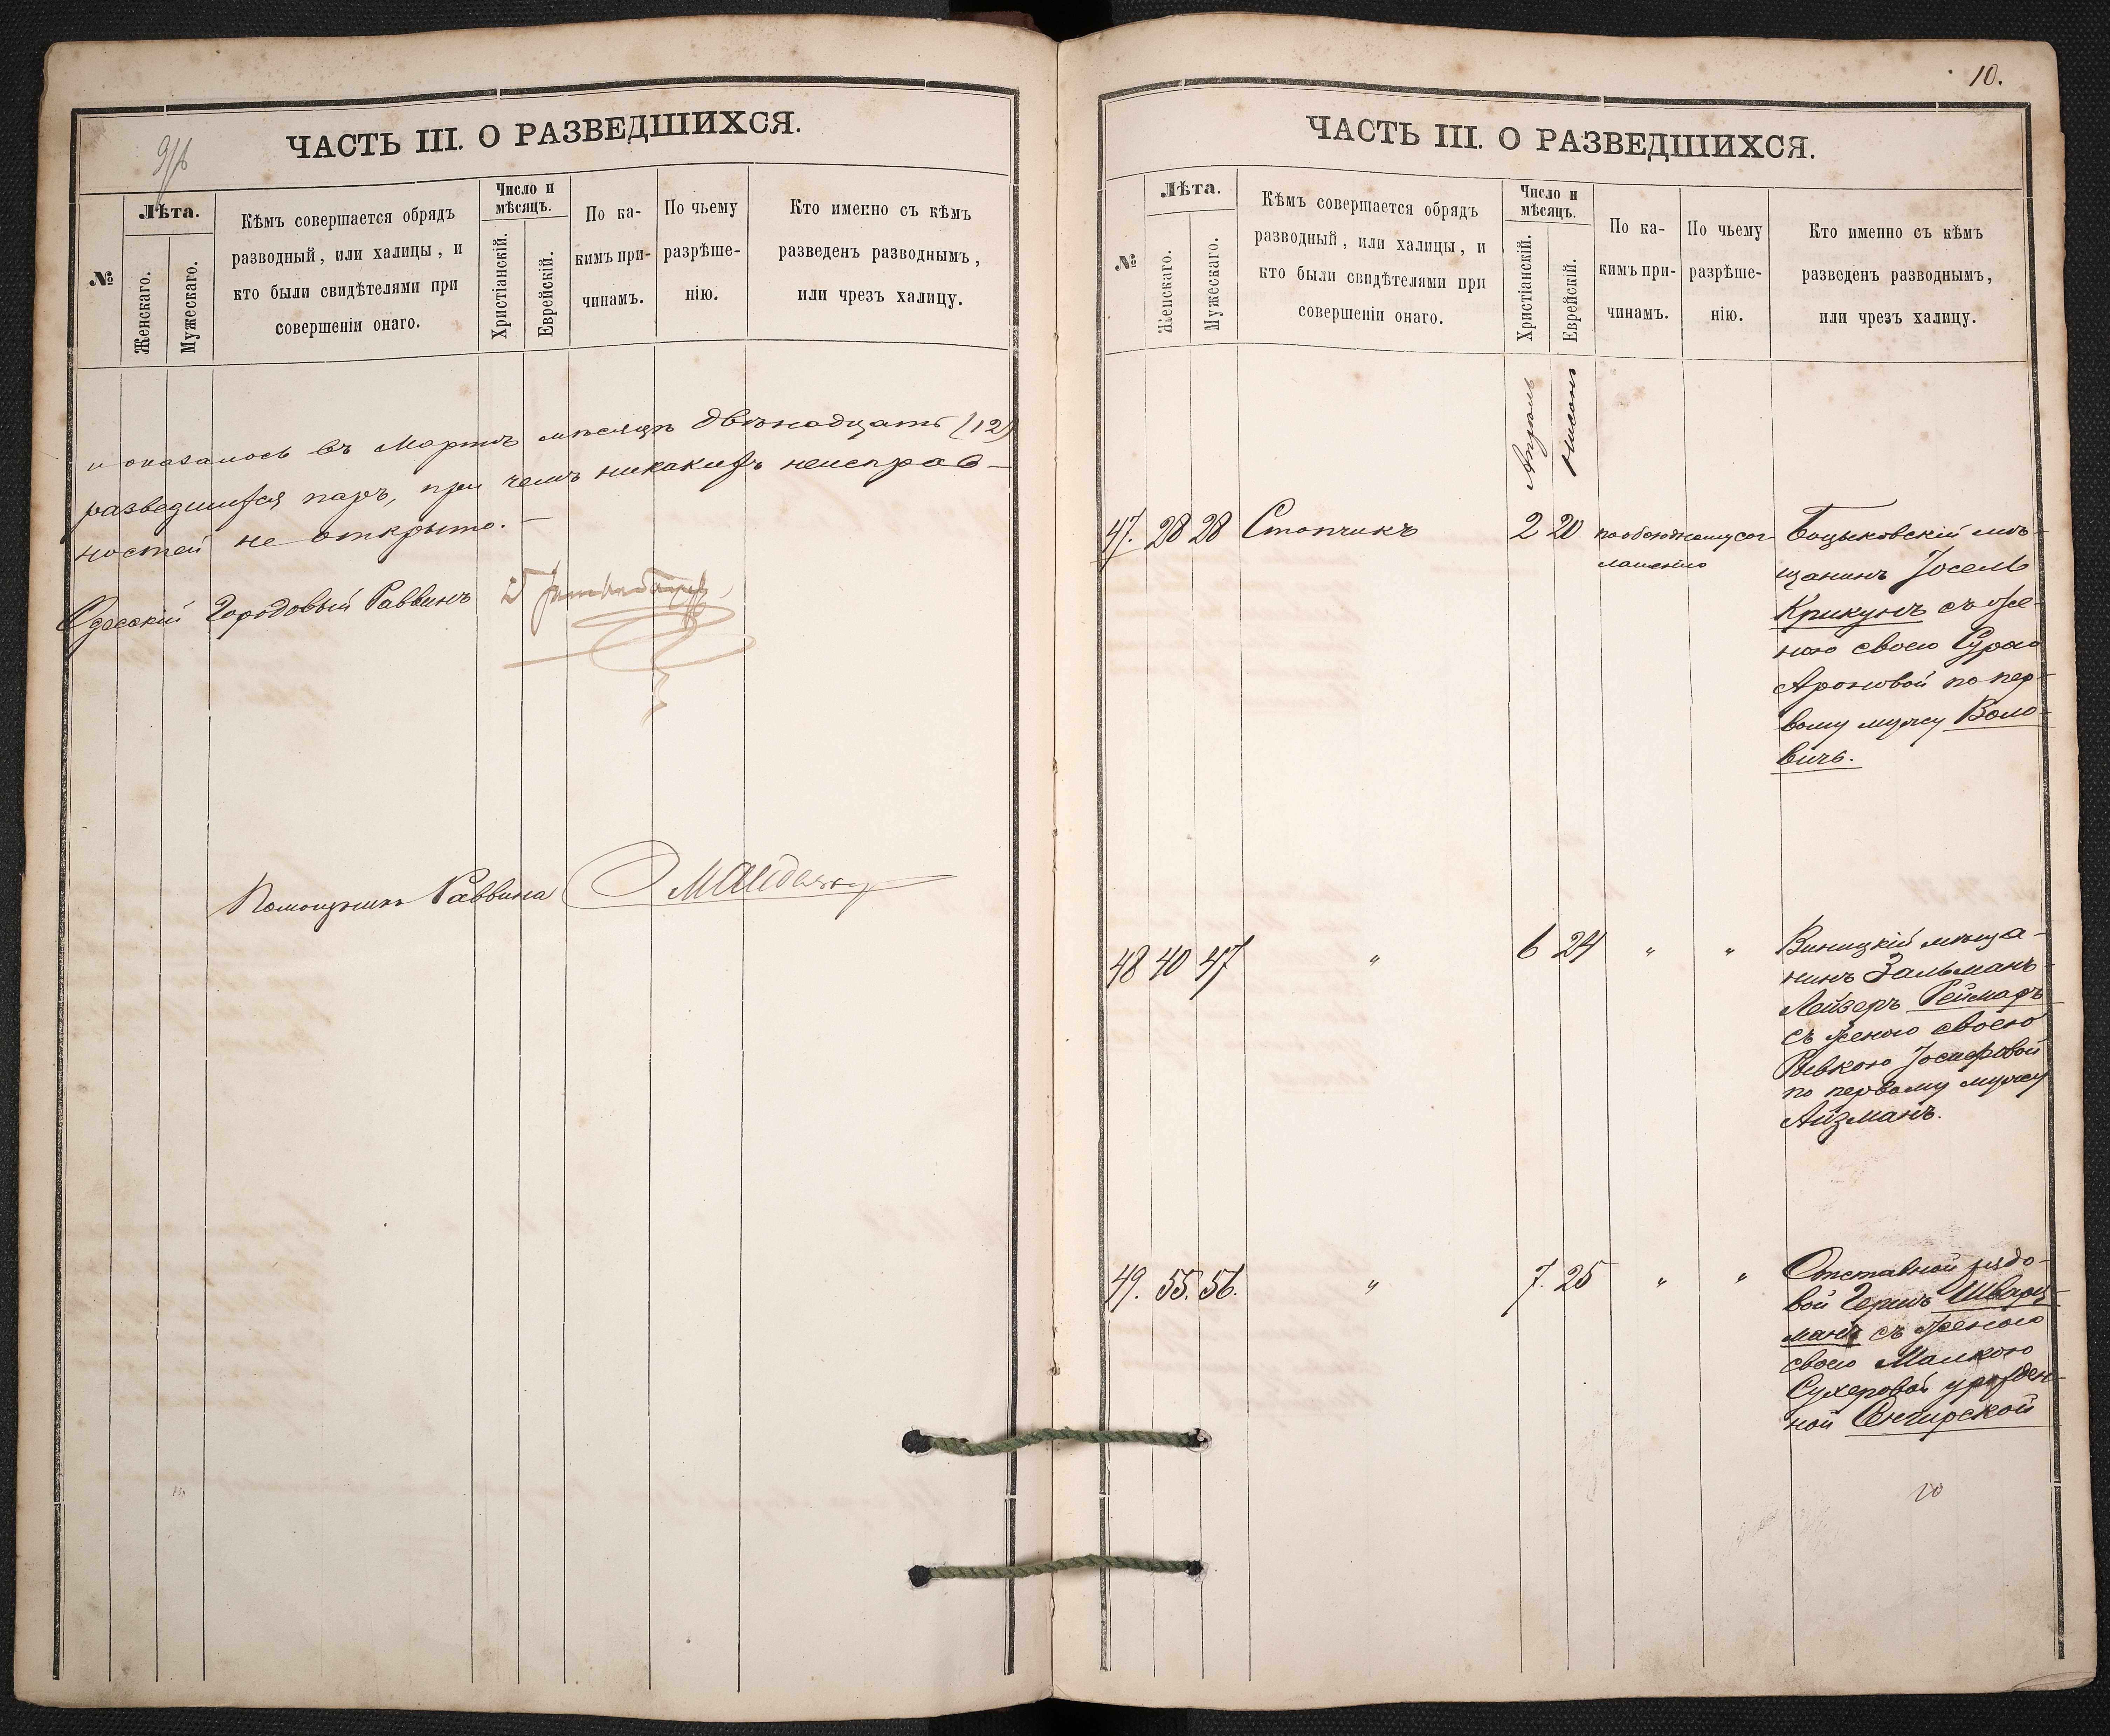 ЧАСТЬ III. О РАЗВЕДШИХСЯ.
№
Лѣта.
Женскаго.
Мужескаго.
Кѣмъ совершается обрядъ
разводный, или халицы, и
кто были свидѣтелями при
совершеніи онаго.
Число и
мѣсяцъ.
Христіанскій.
Еврейскій.
По ка-
кимъ при-
чинамъ.
По чьему
разрѣше-
нію.
Кто именно съ кѣмъ
разведенъ разводнымъ,
или чрезъ халицу.
и оказалось въ Мартѣ мѣсяцѣ двѣнадцать (12)
разведшихся паръ, при чемъ никакихъ неисправ-
ностей не открыто. —
Одесскій Городовый Раввинъ
Помощникъ Раввина
10.
ЧАСТЬ III. О РАЗВЕДШИХСЯ.
№
Лѣта.
Женскаго.
Мужескаго.
Кѣмъ совершается обрядъ
разводный, или халицы, и
кто были свидѣтелями при
совершеніи онаго.
Число и
мѣсяцъ.
Христіанскій.
Еврейскій.
По ка-
кимъ при-
чинамъ.
По чьему
разрѣше-
нію.
Кто именно съ кѣмъ
разведенъ разводнымъ,
или чрезъ халицу.
Апрѣль
Нисонъ
47. 28 28 Стопчикъ 2 20 по обоюдному сог
лашенію
мѣ-
щанинъ Іосель
Крикунъ съ же-
ною своею Сурою
Ароновой по пер-
вому мужу Воло-
вичъ.
48 40 47 " 6 24 " "
Виницкій мѣща-
нинъ Зальманъ-
Лейзеръ Реймаръ
съ женою своею
Ривкою Іосифовой
по первому мужу
Айзманъ.
49. 55. 56. " 7. 25 " "
Отставной рядо-
вой Гершъ Шварц-
манъ съ женою
своею Малкою
Сухеровой урожден-
ной